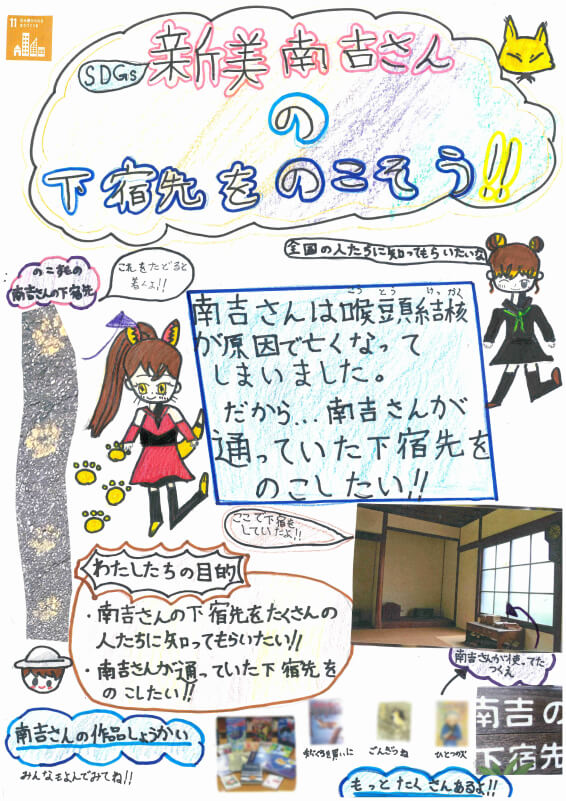 11
SDGs
新美南吉さん
の
下宿先をのこそう!!
全国の人たちに知ってもらいたいな
のこすもの
南吉さんの下宿先
これをたどると
着くよ!!
こうとうけっかく
南吉さんは喉頭結核
が原因で亡くなって
しまいました。
だから…南吉さんが
通っていた下宿先を
のこしたい!!
ここで下宿を
していたよ!!
わたしたちの目的
・南吉さんの下宿先をたくさんの
人たちに知ってもらいたい!!
・南吉さんが通っていた下宿先を
のこしたい!!
南吉さんが使ってた
つくえ
南吉の
下宿先
南吉さんの作品しょうかい
みんなもよんでみてね!!
手ぶくろを買いに
ごんぎつね
ひとつの火
もっとたくさんあるよ!!